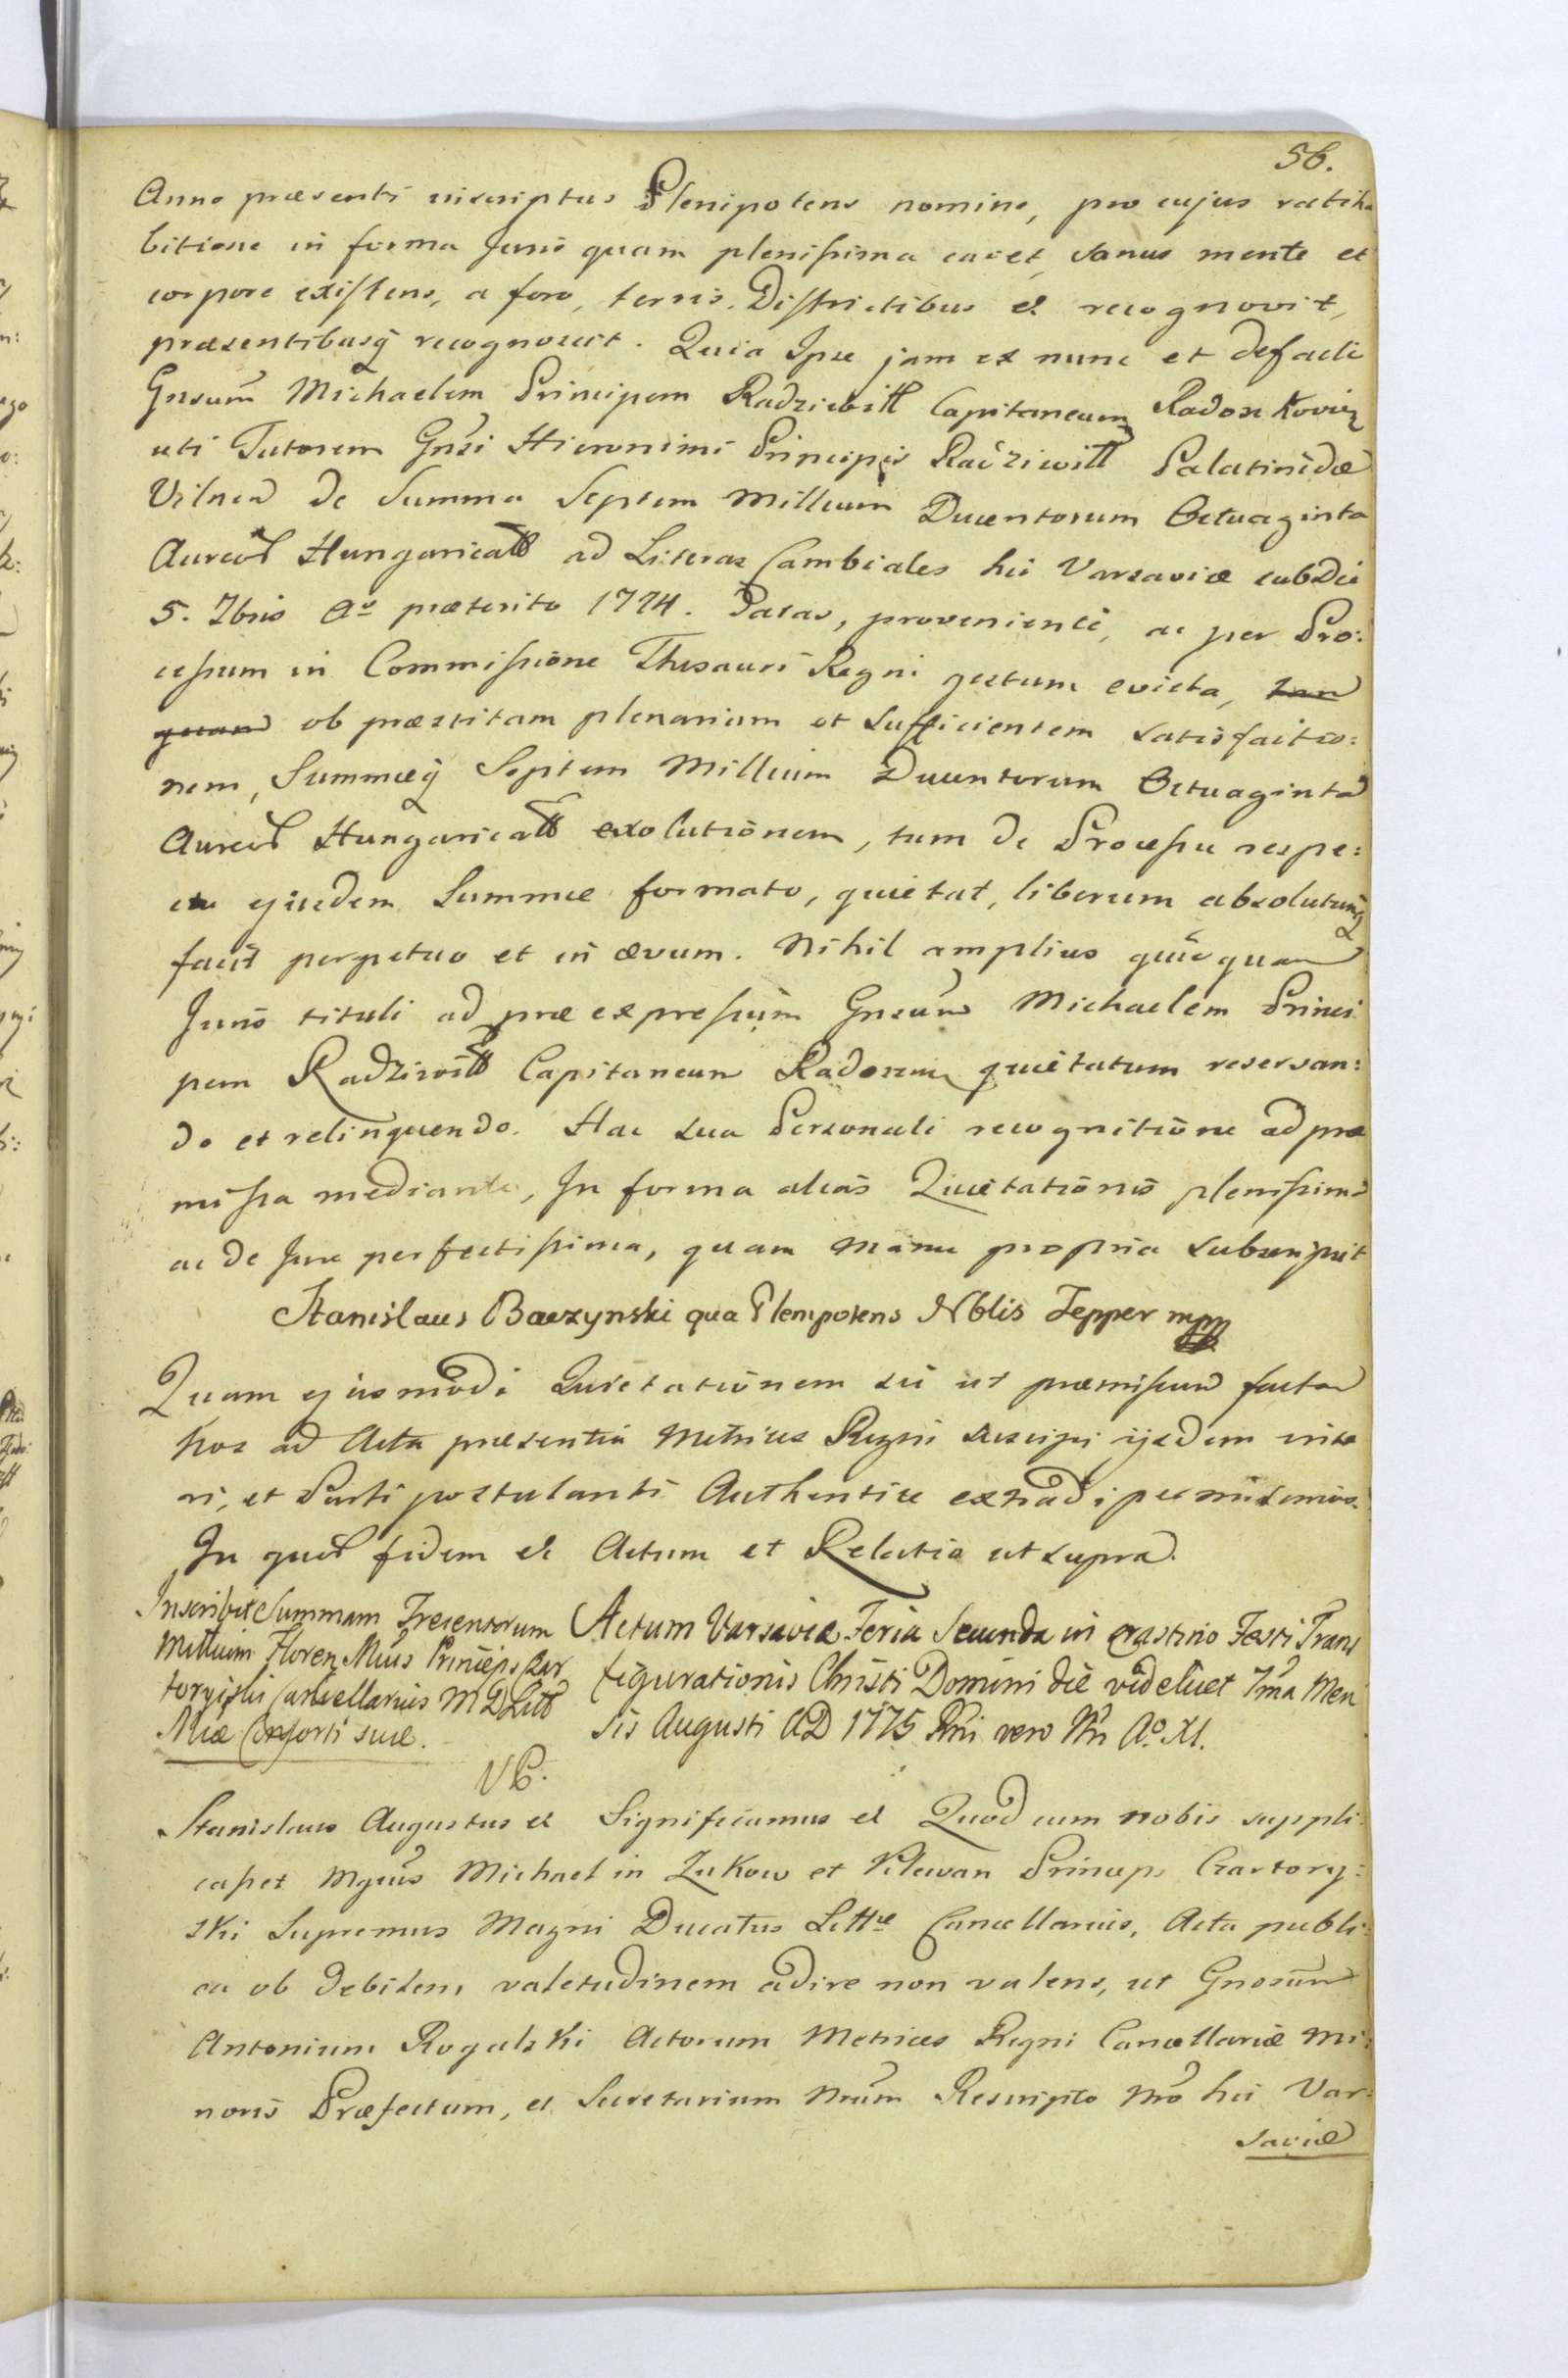 56.
Anno præsenti inscriptus Plenipotens nomine, pro cujus ratiha
bitione in forma Juris quam plenissima cavet, sanus mente et
corpore existens, a foro, terris, Districtibus et recognovit,
præsentibusq recognoscit. Quia Ipse jam ex nunc et defacto
Gnsum Michaelem Principem Radziwill Capitaneum Radoszkovien
uti Tutorem Gnsi Hieronimi Principis Radziwill Palatinidæ
Vilnen de Summa Septem Millium Ducentorum Octuaginta
Aureor Hungarical ad Literas Cambiales hic Varsaviæ sub die
5. 7bris Ao præterito 1774. Datas, provenienti, ac per Pro:
cessum in Commissione Thesauri Regni gestum evicta, tan
quam ob præstitam plenariam et sufficientem satisfactio:
nem, Summæq Septem Millium Ducentorum Octuaginta
Aureor Hungarical exolutionem, tum de Processu respe:
ctu ejusdem Summæ formato, quietat, liberum absolutumq
facit perpetuo et in ævum. Nihil amplius quicquam
Juris tituli ad præexpressum Gnsum Michaelem Princi
pem Radziwill Capitaneum Radoszcen quietatum reservan:
do et relinquendo. Hac sua Personali recognitione ad præ
missa mediante, In forma alias Quietationis plenissima
ac de Jure perfectissima, quam manu propria subscripsit
Stanislaus Baczynski qua Plenipotens Nblis Tepper mpp
Quam ejusmodi Quietationem sic ut præmissum factam
Nos ad Acta præsentia Metrices Regni suscipi ijsdem inse
ri, et Parti postulanti Authentice extradi permisimus.
In quor fidem et Actum et Relatio ut supra.
Inscribit Summam Trecentorum
Millium Floren Mius Princeps Czar
toryiski Cancellarius M D Litt
Niæ Consorti suæ.
Actum Varsaviæ Feria Secunda in crastino Festi Trans
figurationis Christi Domini die videlicet 7ma Men
sis Augusti AD 1775 Rni vero Nri Ao XI.
Stanislaus Augustus et Significamus et Quod cum nobis suppli
casset Mgcus Michael in Zukow et Klewan Princeps Czartory:
ski Supremus Magni Ducatus Littræ Cancellarius, Acta publi:
ca ob debilem valetudinem adire non valens, ut Gnosum
Antonium Rogalski Actorum Metrices Regni Cancellariæ Mi:
noris Præfectum, et Secretarium Nrum Rescripto Nro hic Var:
saviæ